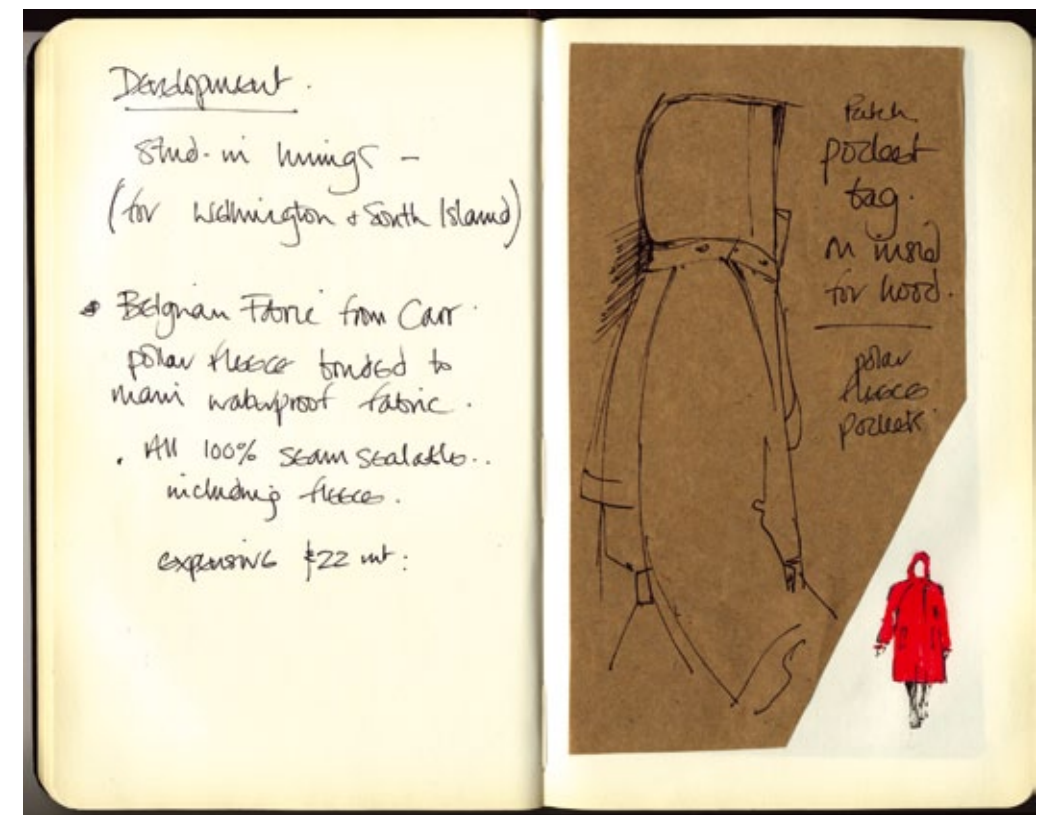 Development.
Stud-in linings –
(for Wellington & South Island)
Belgian Fabric from Carr.
polar fleece bonded to
main waterproof fabric.
. All 100% seam sealable..
including fleece.
expensive $22 mt:
Patch
pocket
bag.
on inside
for hood.
polar
fleece
pockets